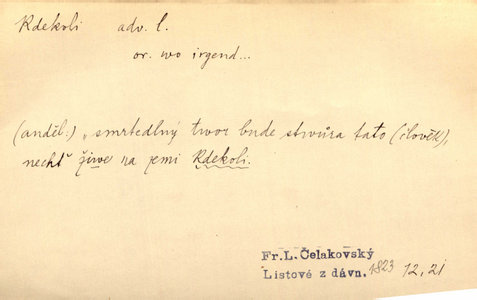 Kdekoli adv. l.
or. wo irgend...
(anděl:) „smrtedlný twor bude stwůra tato (člověk),
nechť žiwe na zemi Kdekoli.
Fr. L. Čelakovský
Listové z dávn. 1823 12, 21